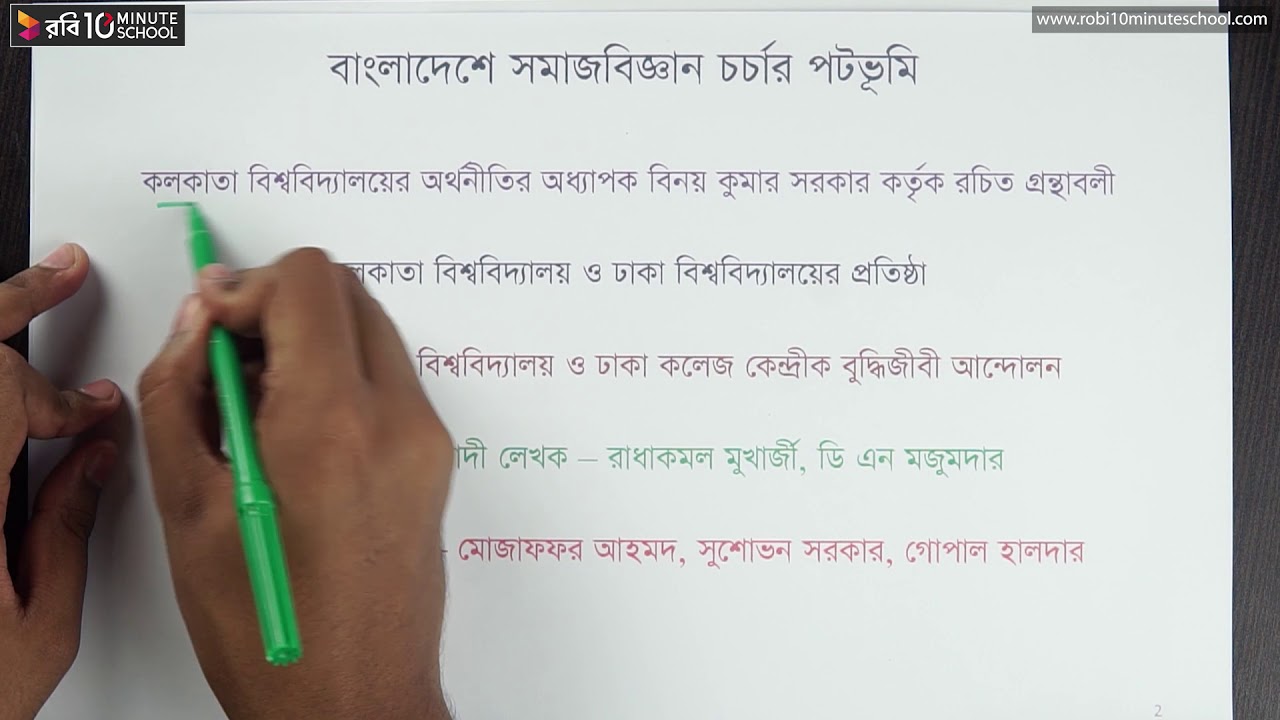 রবি 10 MINUTE SCHOOL
www.robi10minuteschool.com
বাংলাদেশে সমাজবিজ্ঞান চর্চার পটভূমি
কলকাতা বিশ্ববিদ্যালয়ের অর্থনীতির অধ্যাপক বিনয় কুমার সরকার কর্তৃক রচিত গ্রন্থাবলী
বিশ্ববিদ্যালয় ও ঢাকা বিশ্ববিদ্যালয়ের প্রতিষ্ঠা
বিশ্ববিদ্যালয় ও ঢাকা কলেজ কেন্দ্রীক বুদ্ধিজীবী আন্দোলন
লেখক – রাধাকমল মুখার্জী, ডি এন মজুমদার
- মোজাফফর আহমদ, সুশোভন সরকার, গোপাল হালদার
2